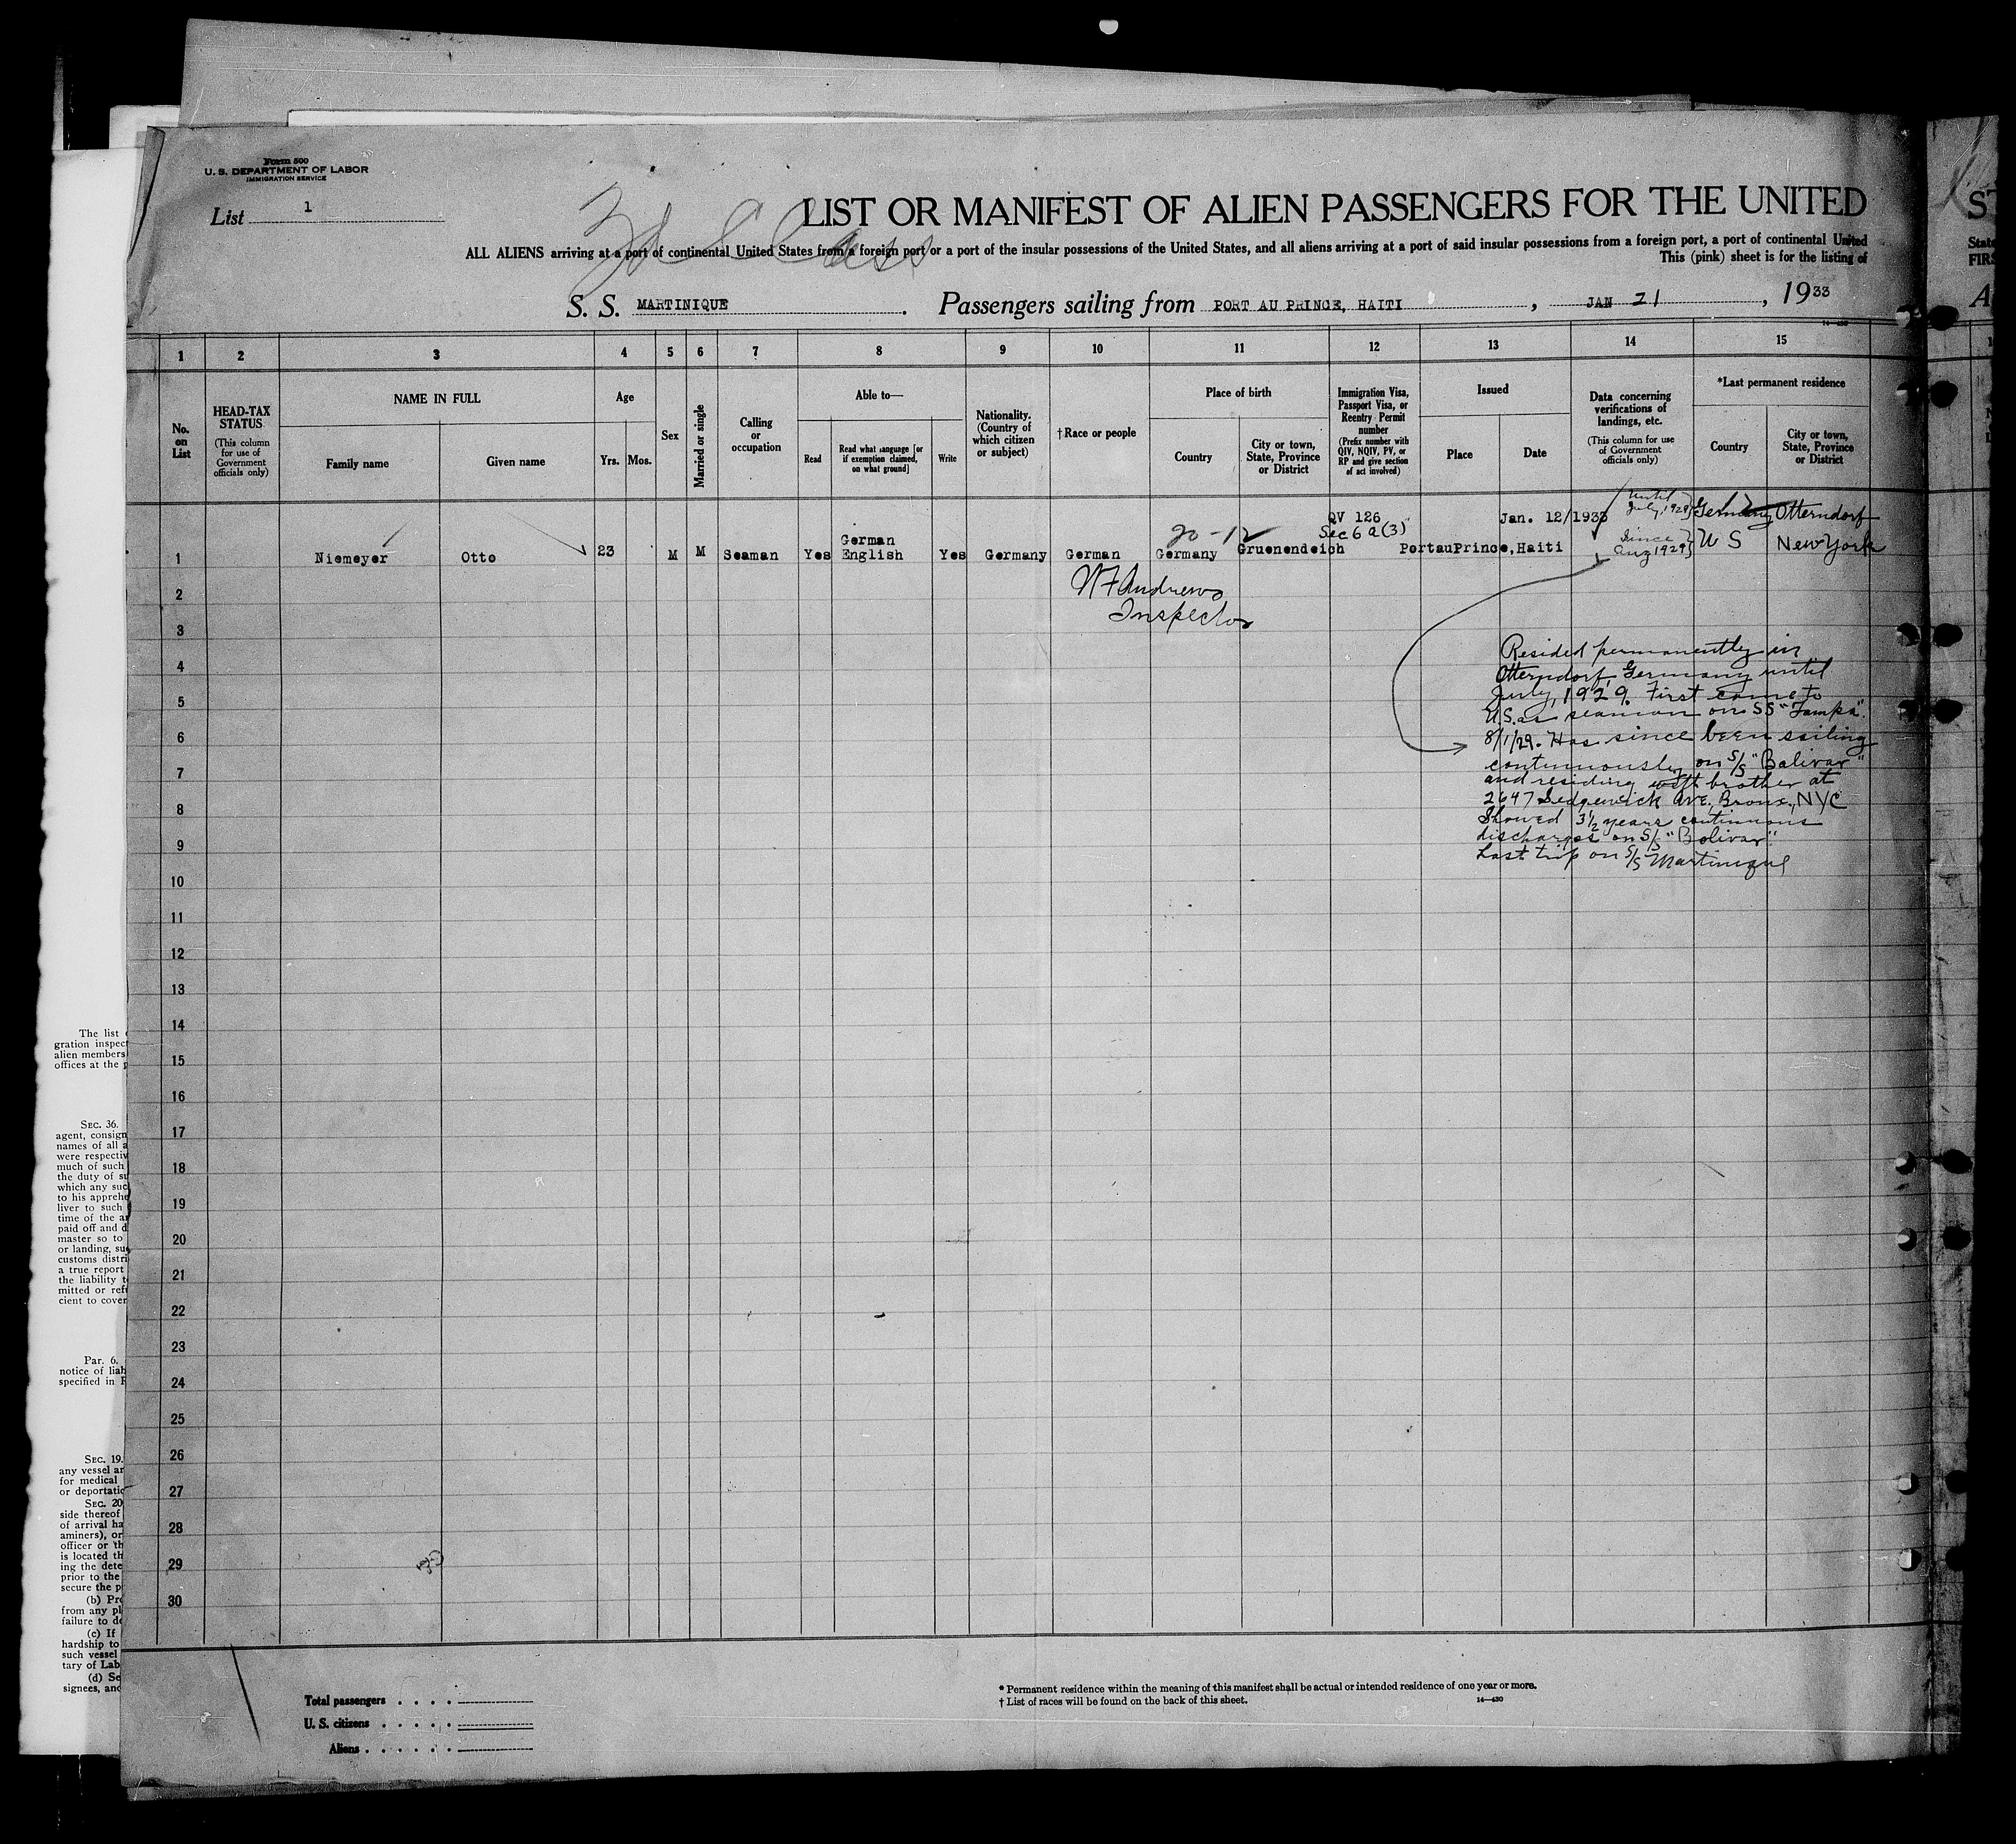 Form 500
U. S. DEPARTMENT OF LABOR
IMMIGRATION SERVICE
List 1
3d Class
LIST OR MANIFEST OF ALIEN PASSENGERS FOR THE UNITED
ST
ALL ALIENS arriving at a port of continental United States from a foreign port or a port of the insular possessions of the United States, and all aliens arriving at a port of said insular possessions from a foreign port, a port of continental United
State
This (pink) sheet is for the listing of
FIRS
S. S. MARTINIQUE. Passengers sailing from PORT AU PRINCE, HAITI, JAN 21, 1933
A
14—430
1 2 3 4 5 6 7 8 9 10 11 12 13 14 15
No. on List
HEAD-TAX STATUS
(This column for use of Government officials only)
NAME IN FULL
Family name
Given name
Age
Yrs. Mos.
Sex
Married or single
Calling or occupation
Able to—
Read
Read what language [or if exemption claimed, on what ground]
Write
Nationality. (Country of which citizen or subject)
†Race or people
Place of birth
Country
City or town, State, Province or District
Immigration Visa, Passport Visa, or Reentry Permit number
(Prefix number with QIV, NQIV, PV, or RP and give section of act involved)
Issued
Place
Date
Data concerning verifications of landings, etc.
(This column for use of Government officials only)
*Last permanent residence
Country
City or town, State, Province or District
QV 126 Jan. 12/1933 until July, 1929 Germany Otterndorf
20-12 Sec 6 a(3)
1 Niemeyer Otto 23 M M Seaman Yes German English Yes Germany German Germany Gruenendeich PortauPrince, Haiti since Aug 1929 U S New York
2
N F Andrews
3
Inspector
Resided permanently in
4
Otterndorf, Germany until
July, 1929. First came to
5
U.S. as seaman on SS "Tampa".
6
8/1/29. Has since been sailing
continuously on S/S "Bolivar"
7
and residing with brother at
8
2647 Sedgewick Ave, Bronx, NYC
Showed 3½ years continuous
9
discharges on S/S "Bolivar".
Last trip on S/S Martinique
10
11
12
13
14
15
16
17
18
19
20
21
22
23
24
25
26
27
28
29
30
Total passengers
U. S. citizens
Aliens
* Permanent residence within the meaning of this manifest shall be actual or intended residence of one year or more.
† List of races will be found on the back of this sheet.
14—430
The list
gration inspec
alien members
offices at the p
SEC. 36.
agent, consign
names of all a
were respectiv
much of such
the duty of su
which any suc
to his apprehe
liver to such
time of the ar
paid off and d
master so to
or landing, su
customs distri
a true report
the liability t
mitted or refu
cient to cover
Par. 6.
notice of liab
specified in F
SEC. 19.
any vessel ar
for medical
or deportatic
SEC. 20
side thereof
of arrival ha
aminers), or
officer or th
is located th
ing the dete
prior to the
secure the p
(b) Pro
from any pl
failure to de
(c) If
hardship to
such vessel
tary of Lab
(d) Se
signees, and